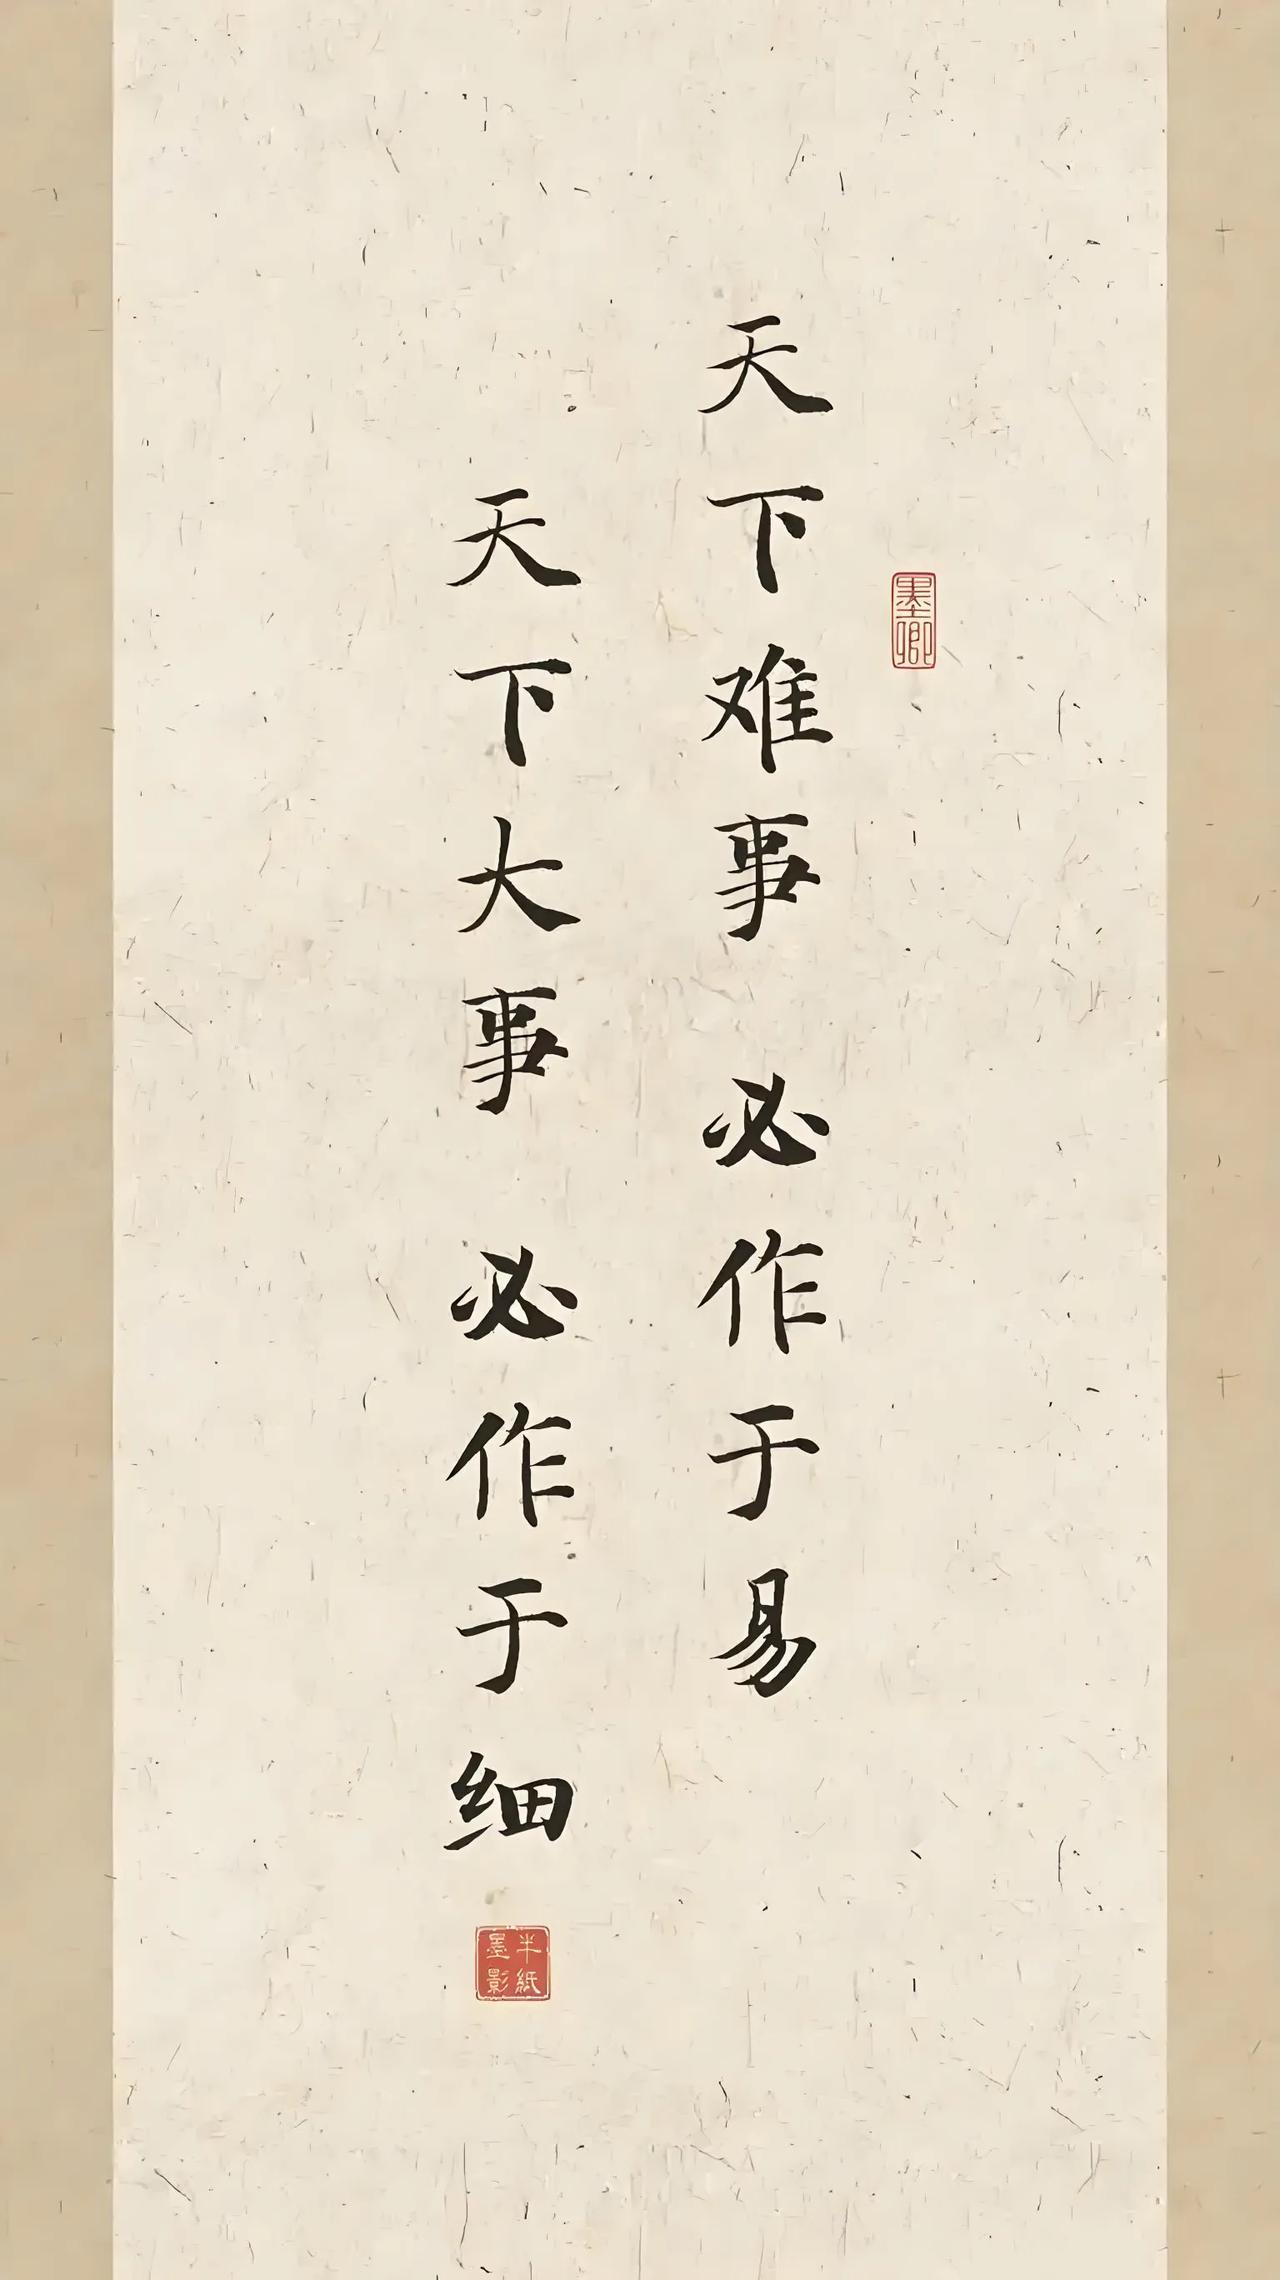 天下难事 必作于易
墨卿
天下大事 必作于细
半纸
墨影